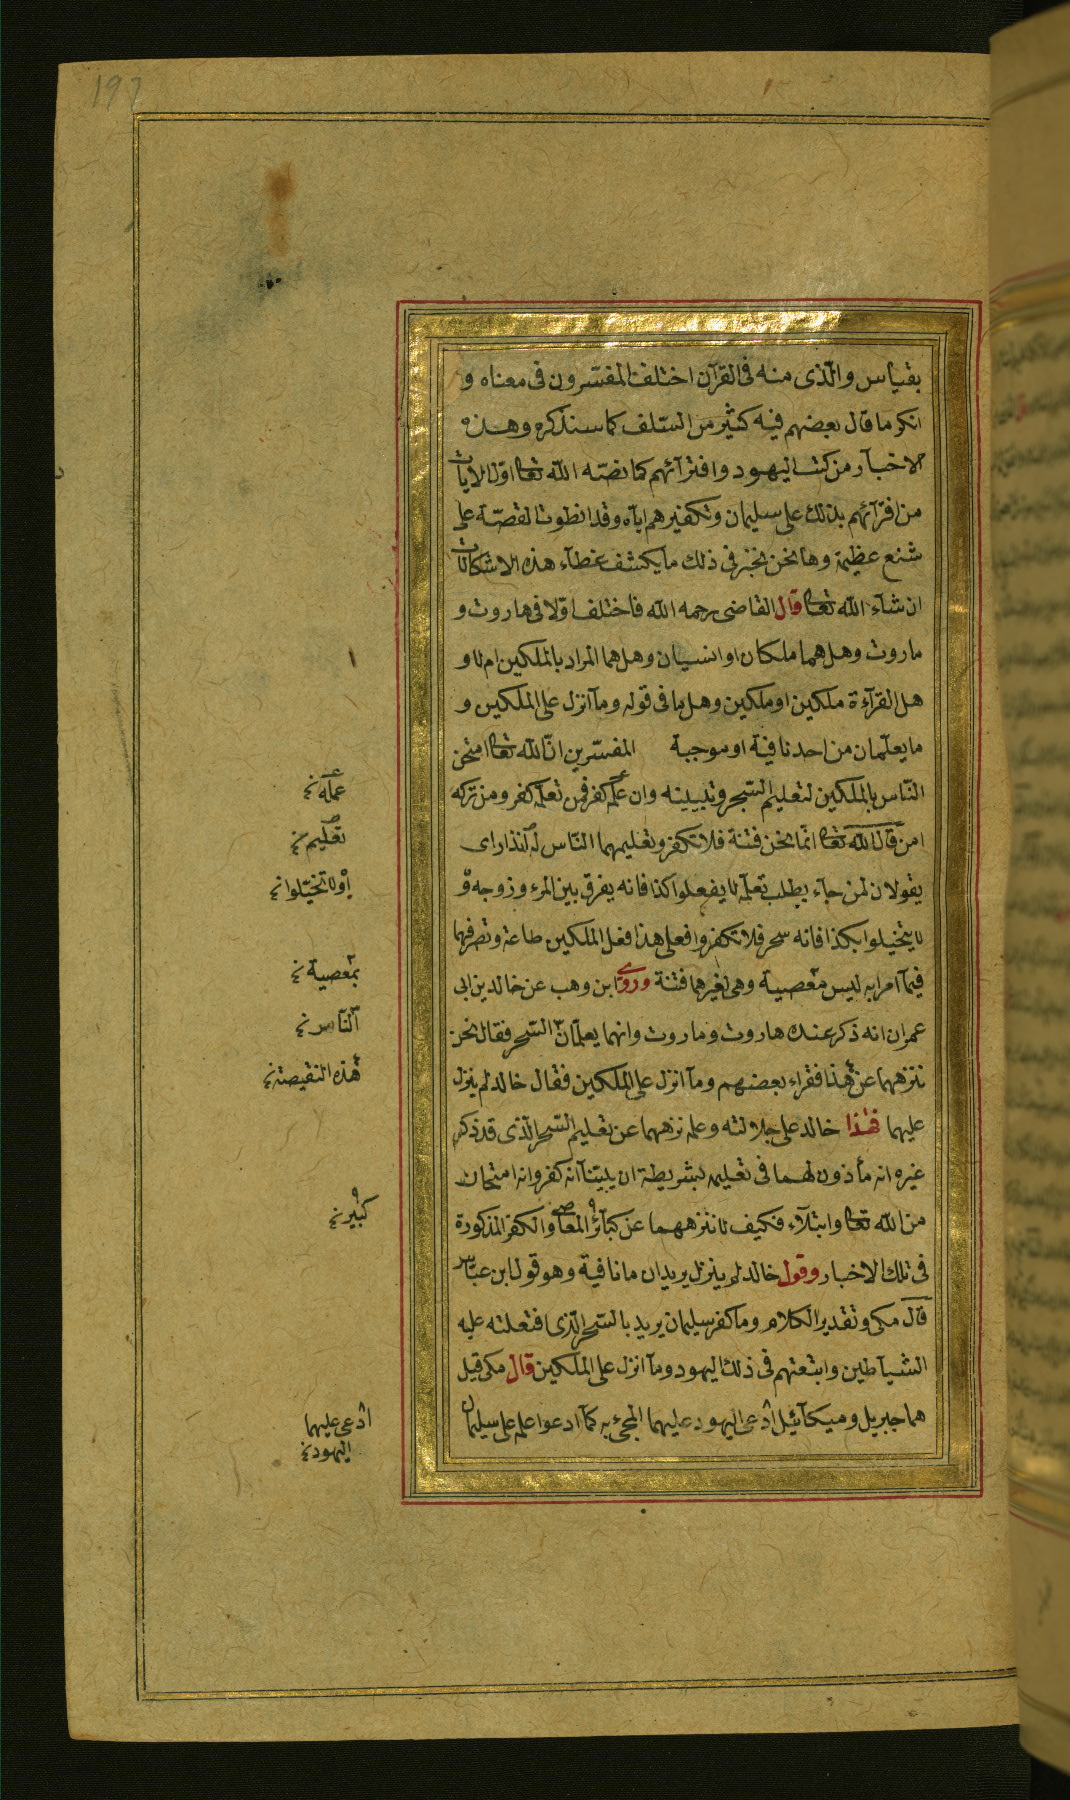 بقياس والّذى منه فى القرآن اختلف المفسّرون فى معناه و
انكر ما قال بعضهم فيه كثير من السّلف كما سنذكره وهذه
الاخبار من كتب اليهود وافترآئهم كما نصّه الله تعالى اوّل الايات
من افترآئهم بذلك على سليمان وتكفيرهم اياه وقد انطوت القصّة على
شنع عظيمة وها نحن نخبر فى ذلك ما يكشف غطآء هذه الاشكالات
ان شآء الله تعالى قال القاضى رحمه الله فاختلف اوّلا فى هاروت و
ماروت وهل هما ملكان او انسيان وهل هما المراد بالملكين ام لا و
هل القرآءة ملكين او ملكين وهل ما فى قوله وما انزل على الملكين و
ما يعلّمان من احد نافية او موجبة المفسّرين انّ الله تعالى امتحن
النّاس بالملكين لتعليم السّحر وتبيينه وان علمه كفر فمن تعلّمه كفر ومن تركه
امن قال الله تعالى انّما نحن فتنة فلا تكفر وتعليمهما النّاس له انذار اى
يقولان لمن جآء يطلب تعلّمه لا يفعلوا كذا فانه يفرق بين المرء وزوجه و
لا يتخيلوا بكذا فانه سحر فلا تكفروا فعلى هذا فعل الملكين طاعة وتصرفهما
فيما امرا به ليس معصية وهى لغيرهما فتنة وروى ابن وهب عن خالد بن ابى
عمران انه ذكر عنده هاروت وماروت وانهما يعلّمان السّحر فقال نحن
ننزههما عن هذا فقراء بعضهم وما انزل على الملكين فقال خالد لم ينزل
عليهما فهذا خالد على جلالته وعلمه نزههما عن تعليم السّحر الّذى قد ذكر
غيره انه مأذون لهما فى تعليمه بشريطة ان يبيّنا انه كفر وانه امتحان
من الله تعالى وابتلآء فكيف لا ننزههما عن كبآئر المعاصى والكفر المذكورة
فى تلك الاخبار وقول خالد لم ينزل يريد ان ما نافية وهو قول ابن عبّاس
قال مكى وتقدير الكلام وما كفر سليمان يريد بالسّحر الّذى افتعلته عليه
الشياطين واتبعتهم فى ذلك اليهود وما انزل على الملكين قال مكى قيل
هما جبريل وميكآئيل ادّعى اليهود عليهما المجئ به كما ادعوا علم على سليمان
عمله
تعليم
او لا تتخيّلوا
بمعصية
النّاس
هذه النقيصة
كبير
ادّعى عليهما
اليهود
197